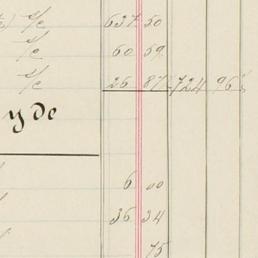 637 50
60 59
26 87 724 96
yde
6 00
36 34
75